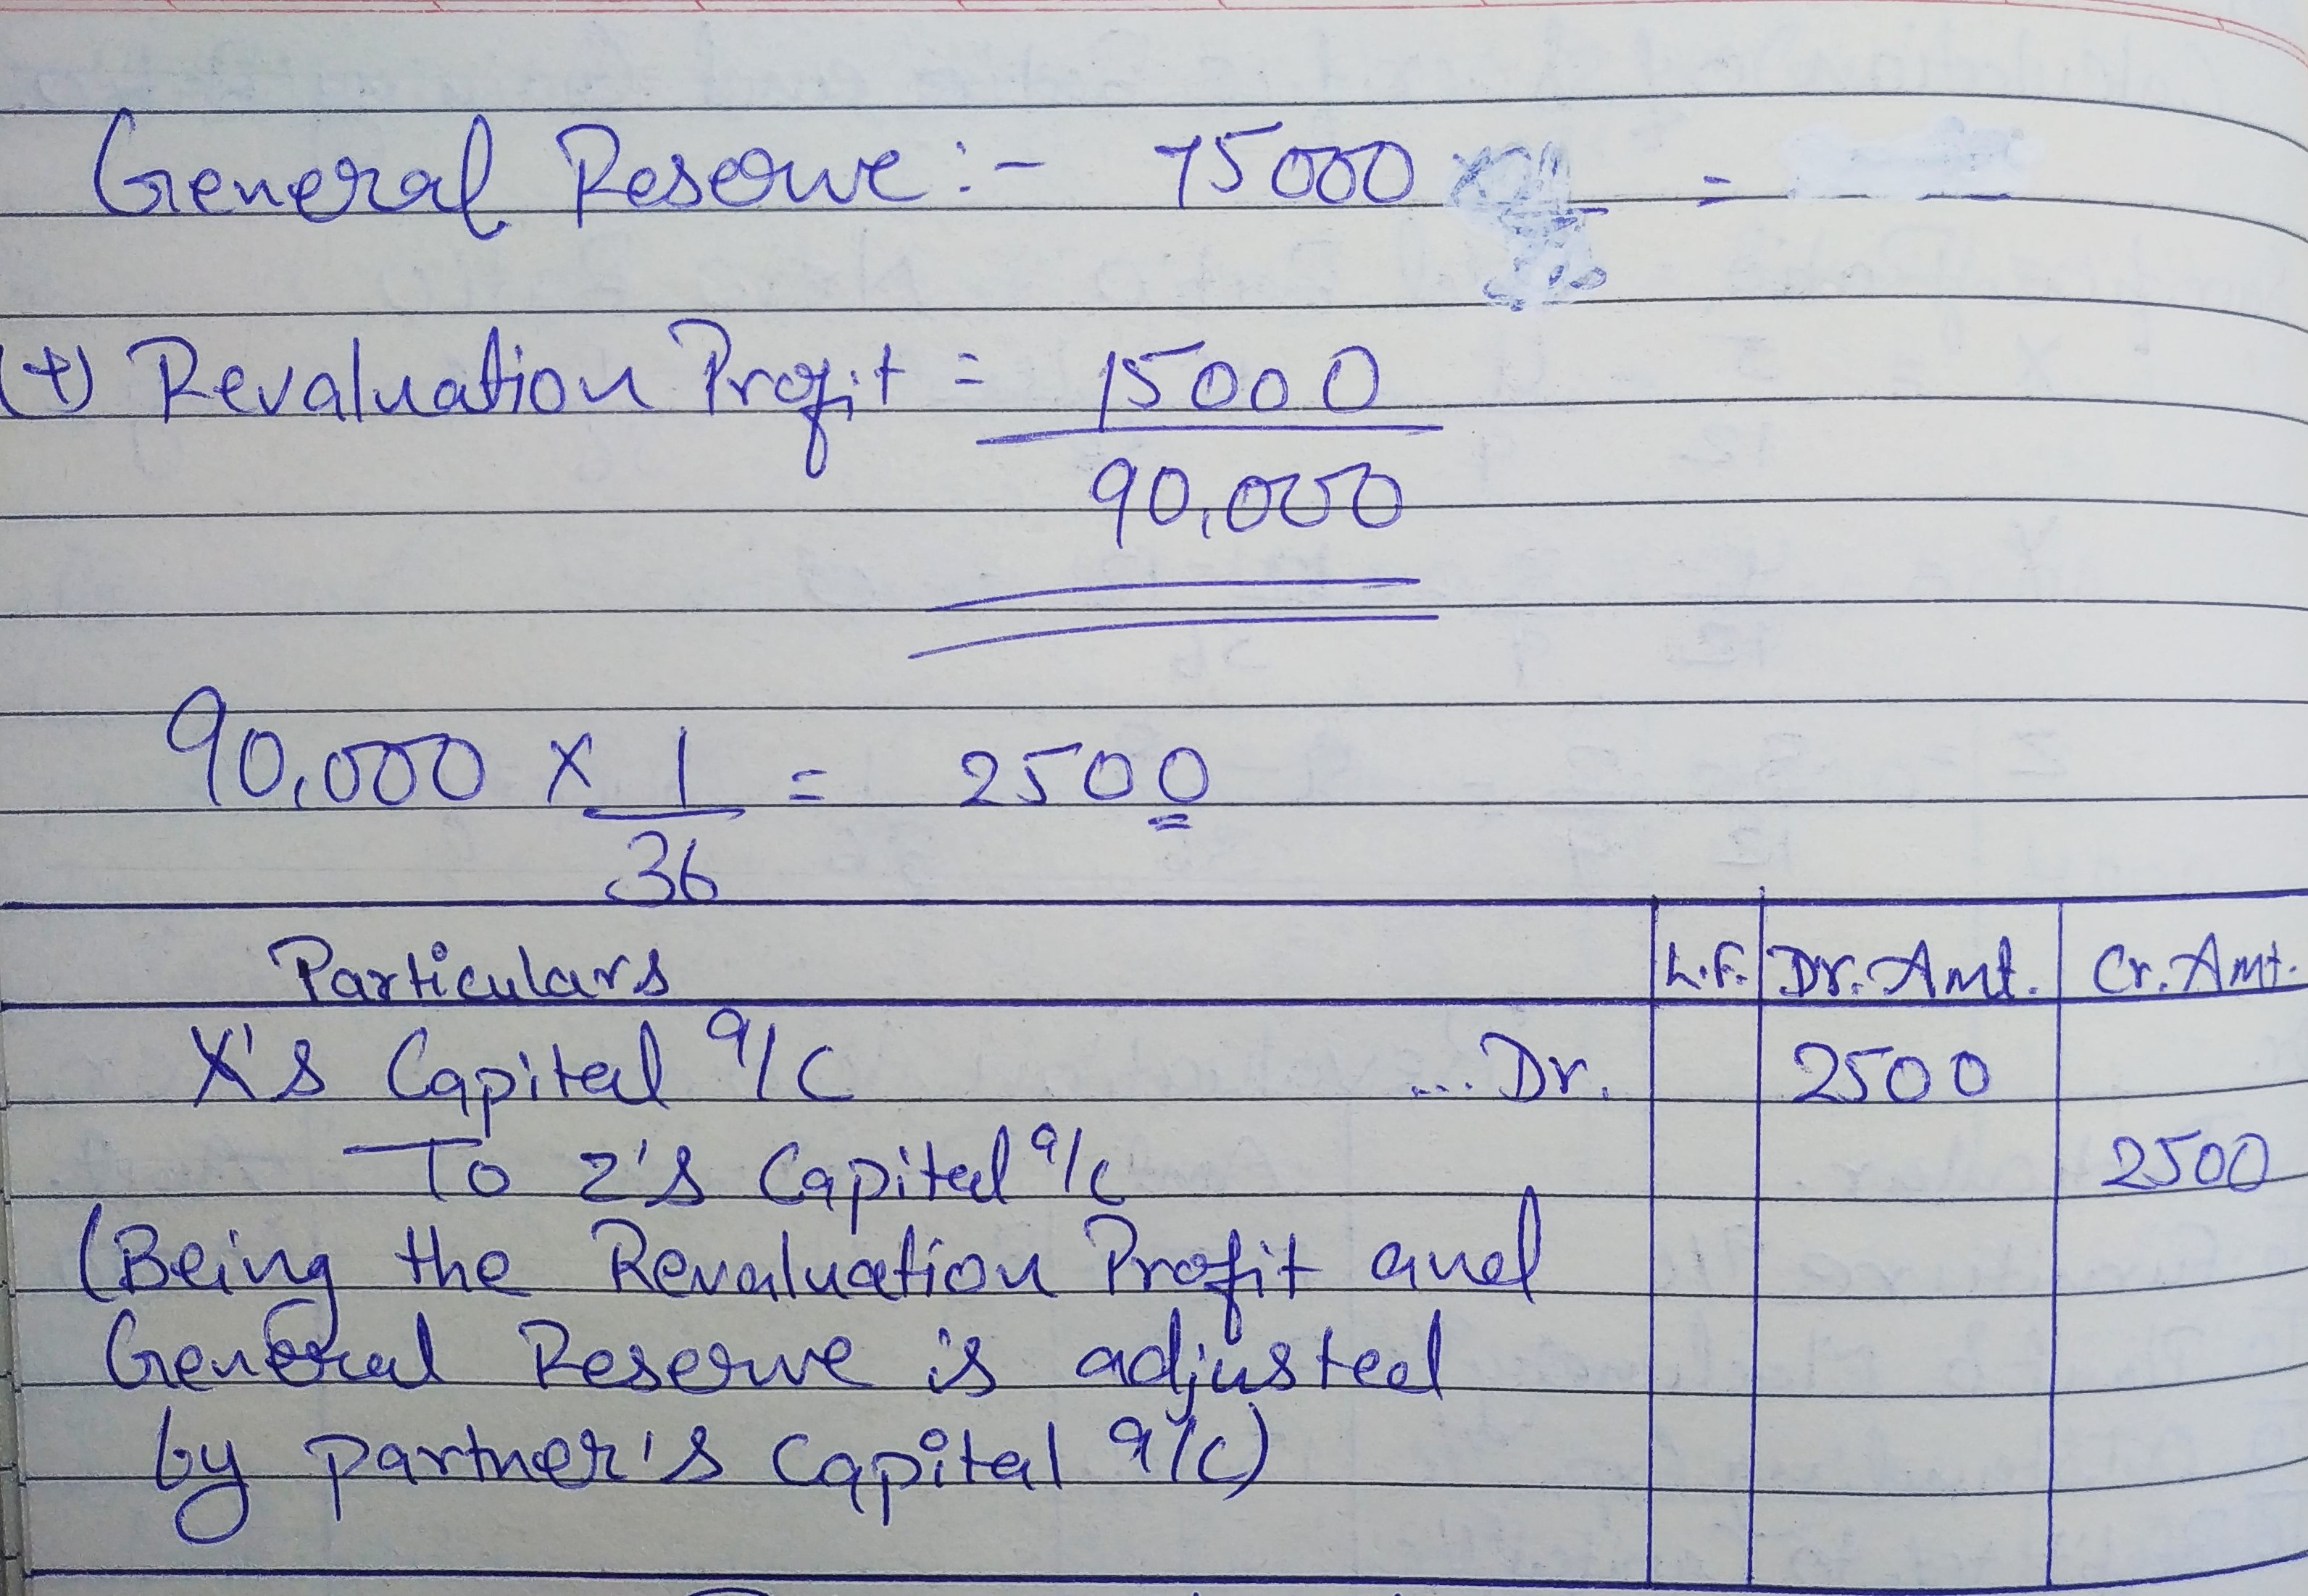 General Reserve :- 75000 =
(+) Revaluation Profit = 15000
90,000
90,000 × 1/36 = 2500
Particulars L.F. Dr. Amt. Cr. Amt.
X's Capital a/c ... Dr. 2500
To Z's Capital a/c 2500
(Being the Revaluation Profit and
General Reserve is adjusted
by partner's Capital a/c)